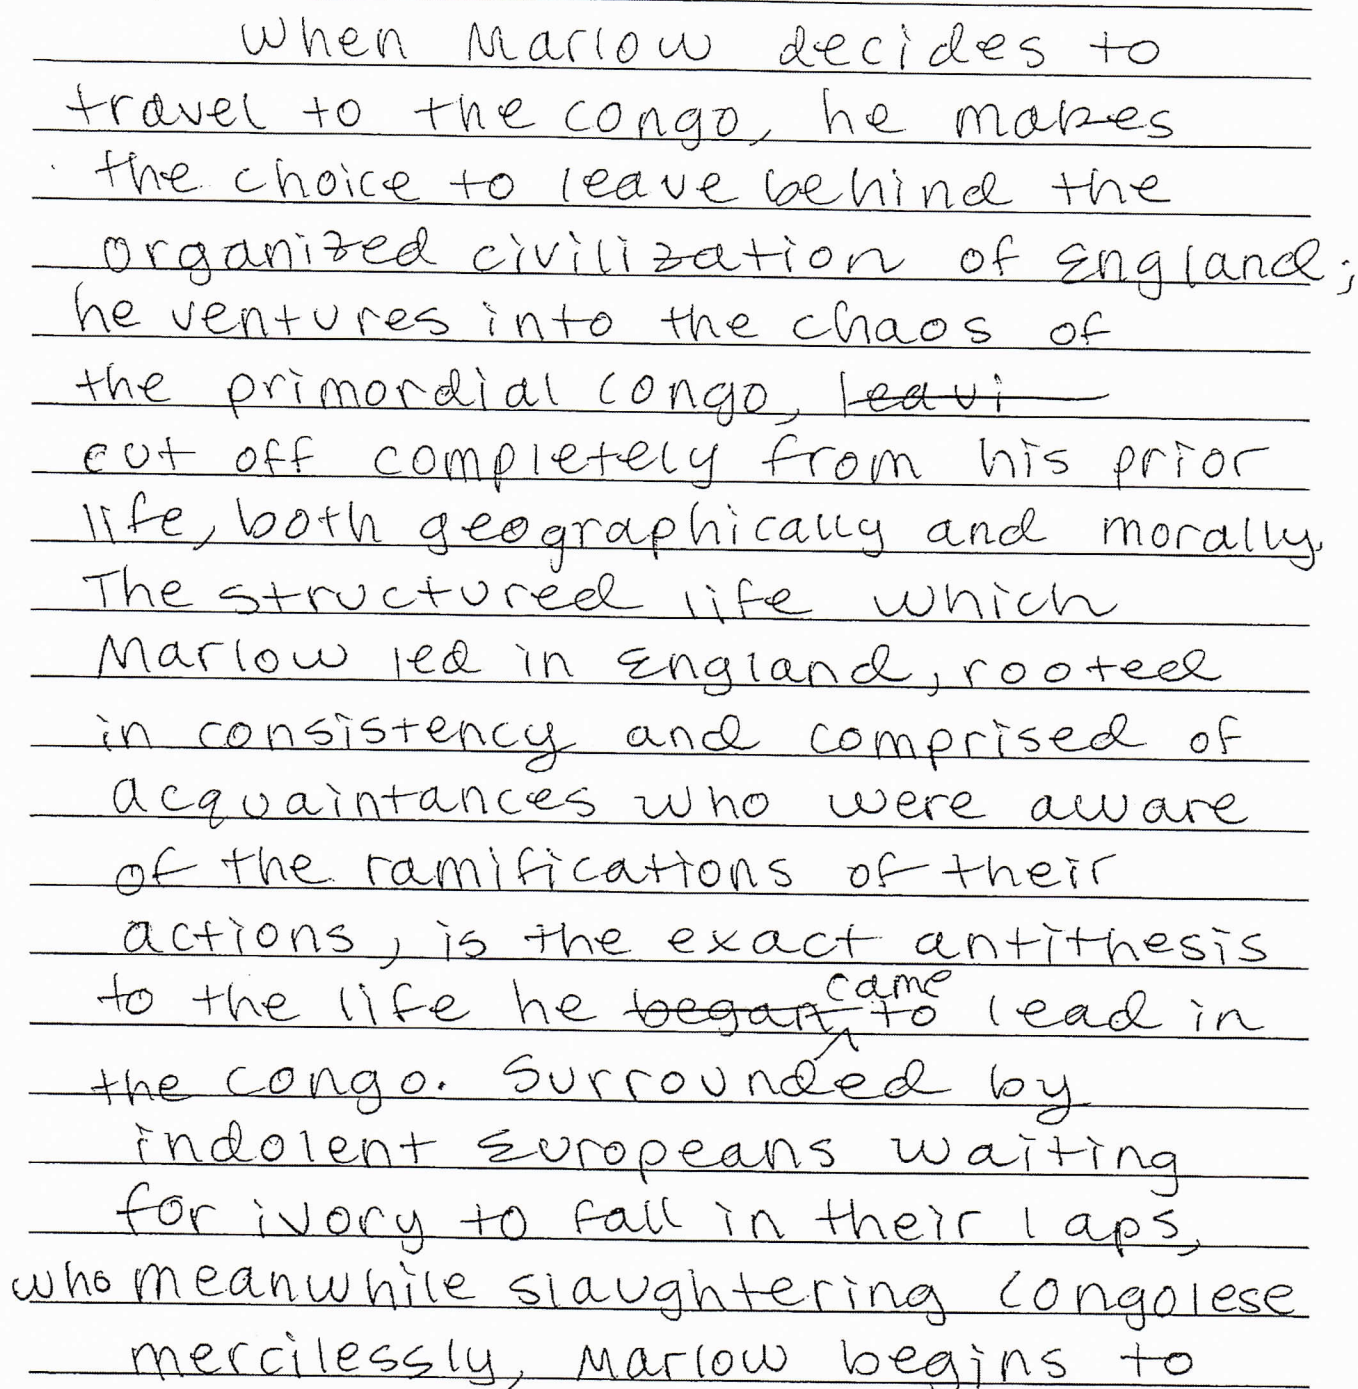 When Marlow decides to
travel to the Congo, he makes
the choice to leave behind the
organized civilization of England;
he ventures into the chaos of
the primordial Congo, leavi
cut off completely from his prior
life, both geographically and morally.
The structured life which
Marlow led in England, rooted
in consistency and comprised of
acquaintances who were aware
of the ramifications of their
actions, is the exact antithesis
to the life he began came to lead in
the Congo. Surrounded by
indolent Europeans waiting
for ivory to fall in their laps,
who meanwhile slaughtering Congolese
mercilessly, Marlow begins to